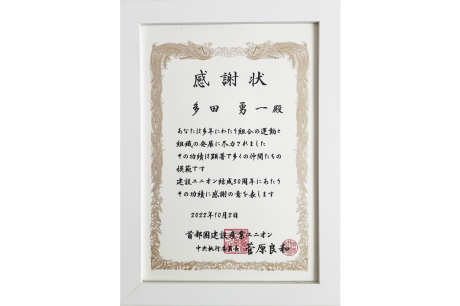 感謝状
多田 勇一 殿
あなたは多年にわたり組合の運動と
組織の発展に尽力されました
その功績は顕著で多くの仲間たちの
模範です
建設ユニオン結成30周年にあたり
その功績に感謝の意を表します
2022年10月2日
首都圏建設産業ユニオン
中央執行委員長 菅原良和